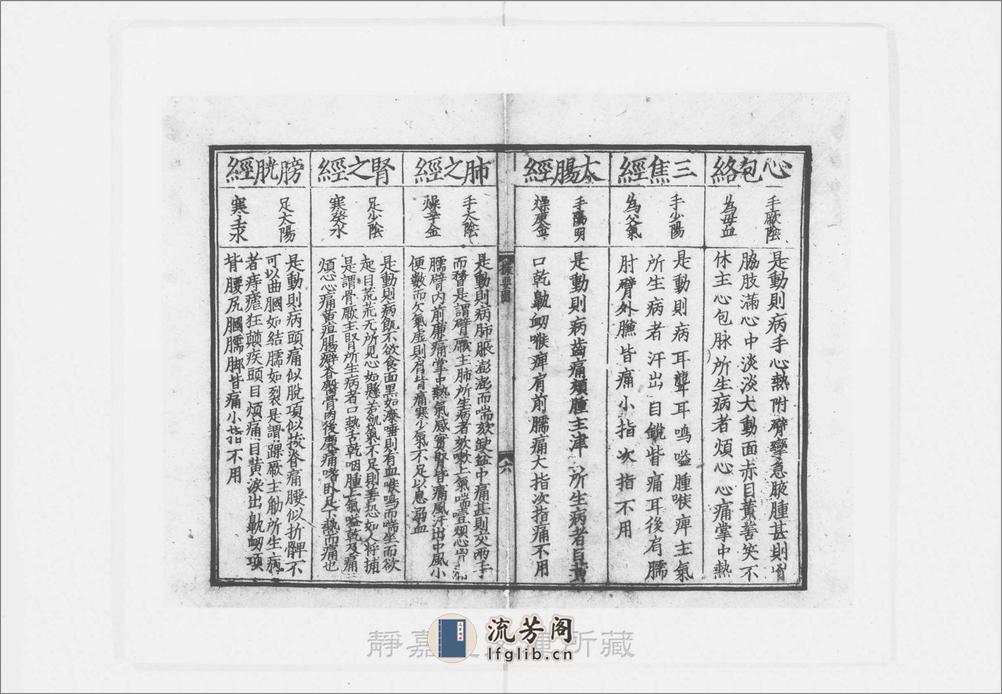 心包絡
手厥陰
為母血
是動則病手心熱附臂攣急腋腫甚則胷
脇肢滿心中淡淡大動面赤目黃善笑不
休主心包脉所生病者煩心心痛掌中熱
三焦經
手少陽
為父氣
是動則病耳聾耳鳴嗌腫喉痺主氣
所生病者汗出目銳眥痛耳後肩臑
肘臂外臁皆痛小指次指不用
大腸經
手陽明
燥庚金
是動則病齒痛頰腫主津所生病者目黃
口乾鼽衂喉痺肩前臑痛大指次指痛不用
六
肺之經
手太陰
燥辛金
是動則病肺脹澎澎而喘欬缺盆中痛甚則交兩手
而瞀是謂臂厥主肺所生病者欬嗽上氣喘喝煩心胷
臑臂內前廉痛掌中熱氣盛實肩背痛風汗出中風小
便數而欠氣虛則肩背痛寒少氣不足以息溺血
腎之經
足少陰
寒癸水
是動則病飢不欲食面黑如漆唾則有血喉鳴而喘坐而欲
起目䀮䀮無所見心如懸若飢氣不足則善恐如人将捕
是謂骨厥主腎所生病者口熱舌乾咽腫上氣嗌乾及痛
煩心心痛黃疸腸澼脊臀股內後廉痛嗜卧足下熱而痛也
膀胱經
足太陽
寒壬水
是動則病頭痛似脫項似拔脊痛腰似折髀不
可以曲膕如結臑如裂是謂踝厥主觔所生病
者痔瘧狂顛疾頭目煩痛目黃淚出鼽衂項
背腰尻膕臑脚皆痛小指不用
靜嘉
所藏
流芳阁
lfglib.cn